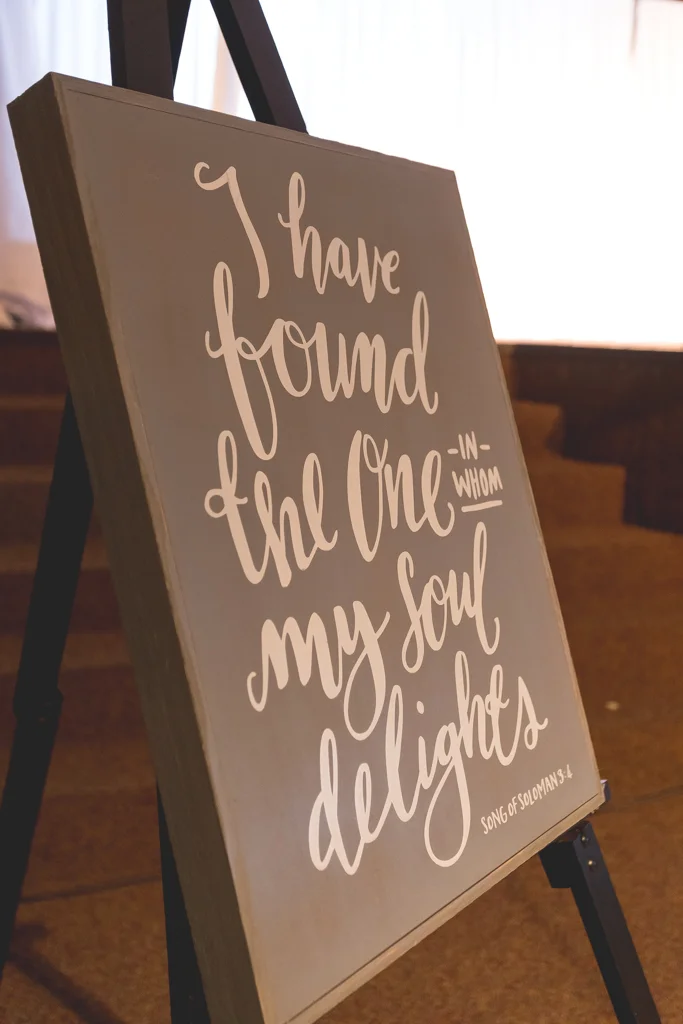 I have
found
the One -IN- WHOM
my soul
delights
SONG OF SOLOMAN 3:4